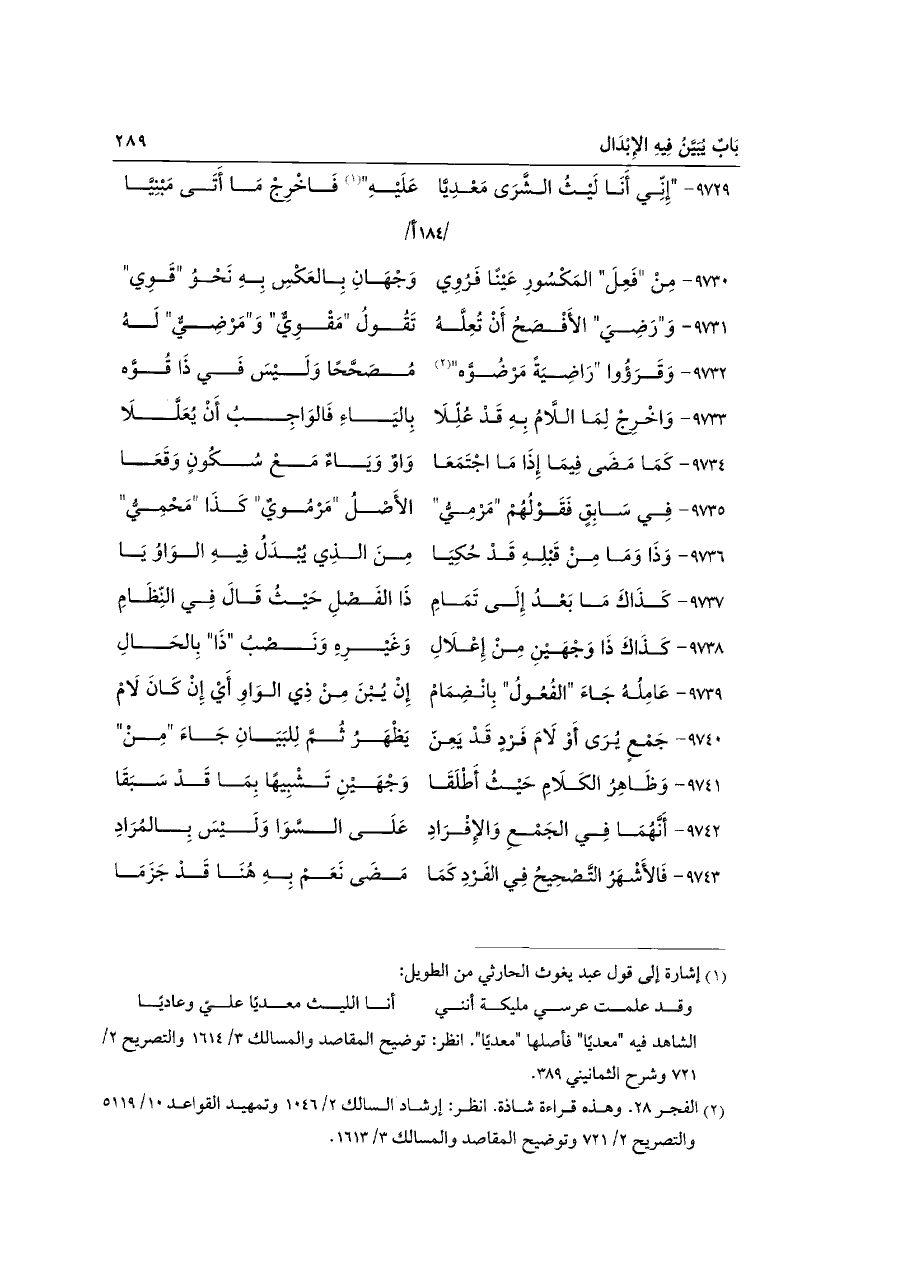 بَابٌ يُبَيَّنُ فِيهِ الإِبْدَال ٢٨٩
٩٧٢٩- "إِنِّي أَنَا لَيْثُ الشَّرَى مَعْدِيًّا عَلَيْهِ"(١) فَاخْرِجْ مَا أَتَى مَبْنِيًّا
/١٨٤أ/
٩٧٣٠- مِنْ "فَعِلَ" المَكْسُورِ عَيْنًا فَرُوِي وَجْهَانِ بِالعَكْسِ بِهِ نَحْوُ "قَوِي"
٩٧٣١- وَ"رَضِيَ" الأَفْصَحُ أَنْ تُعِلَّهُ تَقُولُ "مَقْوِيٌّ" وَ"مَرْضِيٌّ" لَهُ
٩٧٣٢- وَقَرَؤُوا "رَاضِيَةً مَرْضُوَّه"(٢) مُصَحَّحًا وَلَيْسَ فَي ذَا قُوَّه
٩٧٣٣- وَاخْرِجْ لِمَا اللَّامُ بِهِ قَدْ عُلِّلَا بِاليَاءِ فَالوَاجِبُ أَنْ يُعَلَّلَا
٩٧٣٤- كَمَا مَضَى فِيمَا إِذَا مَا اجْتَمَعَا وَاوٌ وَيَاءٌ مَعْ سُكُونٍ وَقَعَا
٩٧٣٥- فِي سَابِقٍ فَقَوْلُهُمْ "مَرْمِيُّ" الأَصْلُ "مَرْمُويٌ" كَذَا "مَحْمِيُّ"
٩٧٣٦- وَذَا وَمَا مِنْ قَبْلِهِ قَدْ حُكِيَا مِنَ الذِي يُبْدَلُ فِيهِ الوَاوُ يَا
٩٧٣٧- كَذَاكَ مَا بَعْدُ إِلَى تَمَامِ ذَا الفَصْلِ حَيْثُ قَالَ فِي النِّظَامِ
٩٧٣٨- كَذَاكَ ذَا وَجْهَيْنِ مِنْ إِعْلَالِ وَغَيْرِهِ وَنَصْبُ "ذَا" بِالحَالِ
٩٧٣٩- عَامِلُهُ جَاءَ "الفُعُولُ" بِانْضِمَامْ إِنْ يُبْنَ مِنْ ذِي الوَاوِ أَيْ إِنْ كَانَ لَامْ
٩٧٤٠- جَمْعٍ يُرَى أَوْ لَامَ فَرْدٍ قَدْ يَعِنّ يَظْهَرُ ثُمَّ لِلبَيَانِ جَاءَ "مِنْ"
٩٧٤١- وَظَاهِرُ الكَلَامِ حَيْثُ أَطْلَقَا وَجْهَيْنِ تَشْبِيهًا بِمَا قَدْ سَبَقَا
٩٧٤٢- أَنَّهُمَا فِي الجَمْعِ وَالإِفْرَادِ عَلَى السَّوَا وَلَيْسَ بِالمُرَادِ
٩٧٤٣- فَالأَشْهَرُ التَّصْحِيحُ فِي الفَرْدِ كَمَا مَضَى نَعَمْ بِهِ هُنَا قَدْ جَزَمَا
(١) إشارة إلى قول عبد يغوث الحارثي من الطويل:
وقد علمت عرسي مليكة أنني أنا الليث معديًا عليّ وعاديًا
الشاهد فيه "معديًا" فأصلها "معديًا". انظر: توضيح المقاصد والمسالك ٣/ ١٦١٤ والتصريح ٢/
٧٢١ وشرح الثمانيني ٣٨٩.
(٢) الفجر ٢٨. وهذه قراءة شاذة. انظر: إرشاد السالك ٢/ ١٠٤٦ وتمهيد القواعد ١٠/ ٥١١٩
والتصريح ٢/ ٧٢١ وتوضيح المقاصد والمسالك ٣/ ١٦١٣.